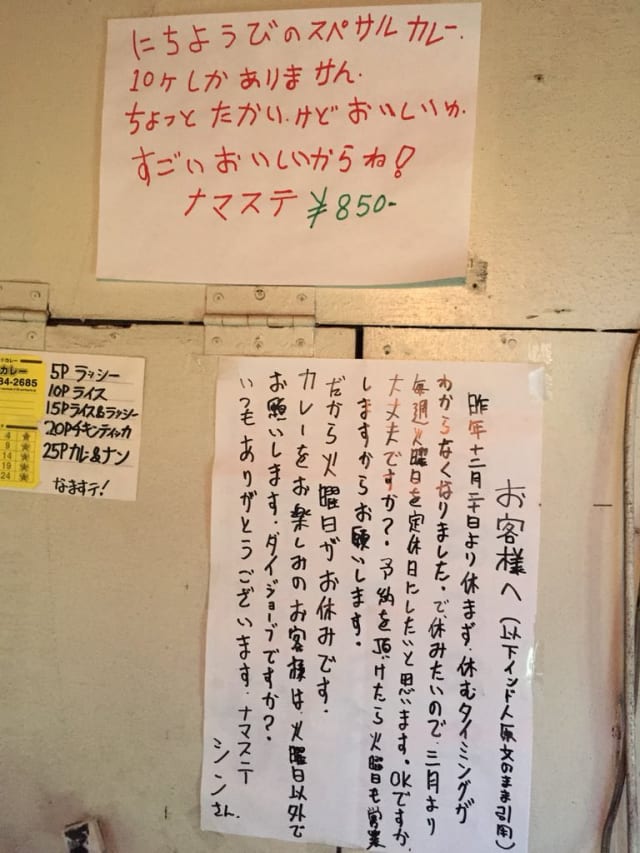 にちようびのスペサルカレー.
10ヶしかありません.
ちょっとたかい.けどおいしいゅ.
すごいおいしいからね!
ナマステ ¥850-
カレー
34-2685
4 ★
9 ★
14 ★
19 ★
24 ★
5P ラッシー
10P ライス
15P ライス&ラッシー
20P チキンティッカ
25P カレー&ナン
なますテ!
お客様へ(以下インド人原文のまま引用)
昨年十二月二十日より休まず.休むタイミングが
わからなくなりました.で休みたいので.三月より
毎週火曜日を定休日にしたいと思います.OKですか.
大丈夫ですか?.予約を頂けたら火曜日も営業
しますからお願いします.
だから火曜日がお休みです.
カレーをお楽しみのお客様は.火曜日以外で
お願いします.ダイジョーブですか?
いつもありがとうございます.ナマステ
シンさん.